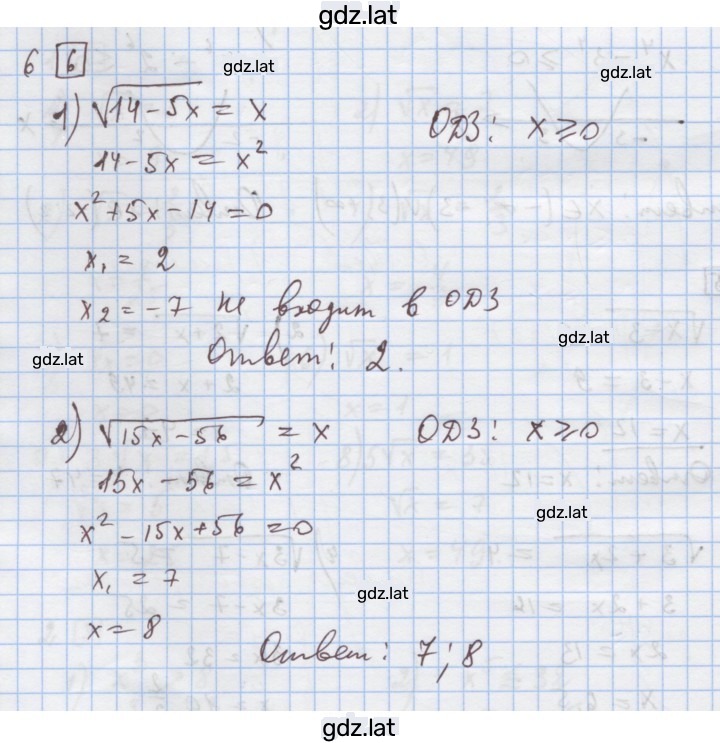 gdz.lat
6 6
gdz.lat
gdz.lat
1) √14-5x = x ОДЗ: x ≥ 0
14-5x = x²
x²+5x-14=0
x₁ = 2
x₂ = -7 не входит в ОДЗ
gdz.lat
Ответ: 2.
gdz.lat
2) √15x-56 = x ОДЗ: x ≥ 0
15x - 56 = x²
gdz.lat
x² - 15x + 56 = 0
x₁ = 7
gdz.lat
x = 8
Ответ: 7; 8
gdz.lat